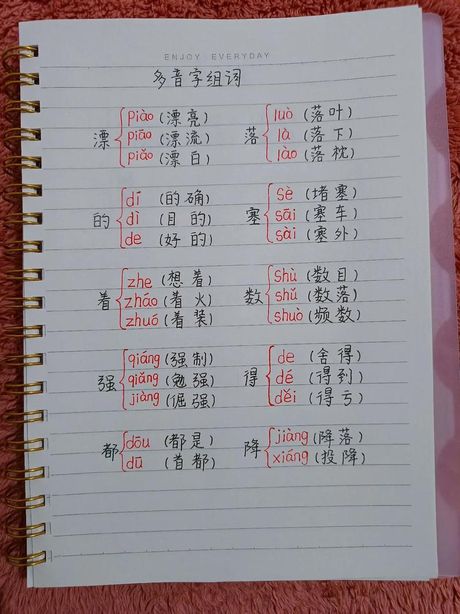 ENJOY EVERYDAY
多音字组词
漂
piào (漂亮)
piāo (漂流)
piǎo (漂白)
落
luò (落叶)
là (落下)
lào (落枕)
的
dí (的确)
dì (目的)
de (好的)
塞
sè (堵塞)
sāi (塞车)
sài (塞外)
着
zhe (想着)
zháo (着火)
zhuó (着装)
数
shù (数目)
shǔ (数落)
shuò (频数)
强
qiáng (强制)
qiǎng (勉强)
jiàng (倔强)
得
de (舍得)
dé (得到)
děi (得亏)
都
dōu (都是)
dū (首都)
降
jiàng (降落)
xiáng (投降)